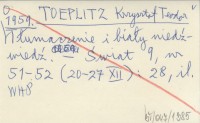 1959. TOEPLITZ Krzysztof Teodor
Tłumaczenie i biały niedź-
wiedź. 1959. — Świat 9, nr
51-52 (20-27 XII) : 28, il.
1985